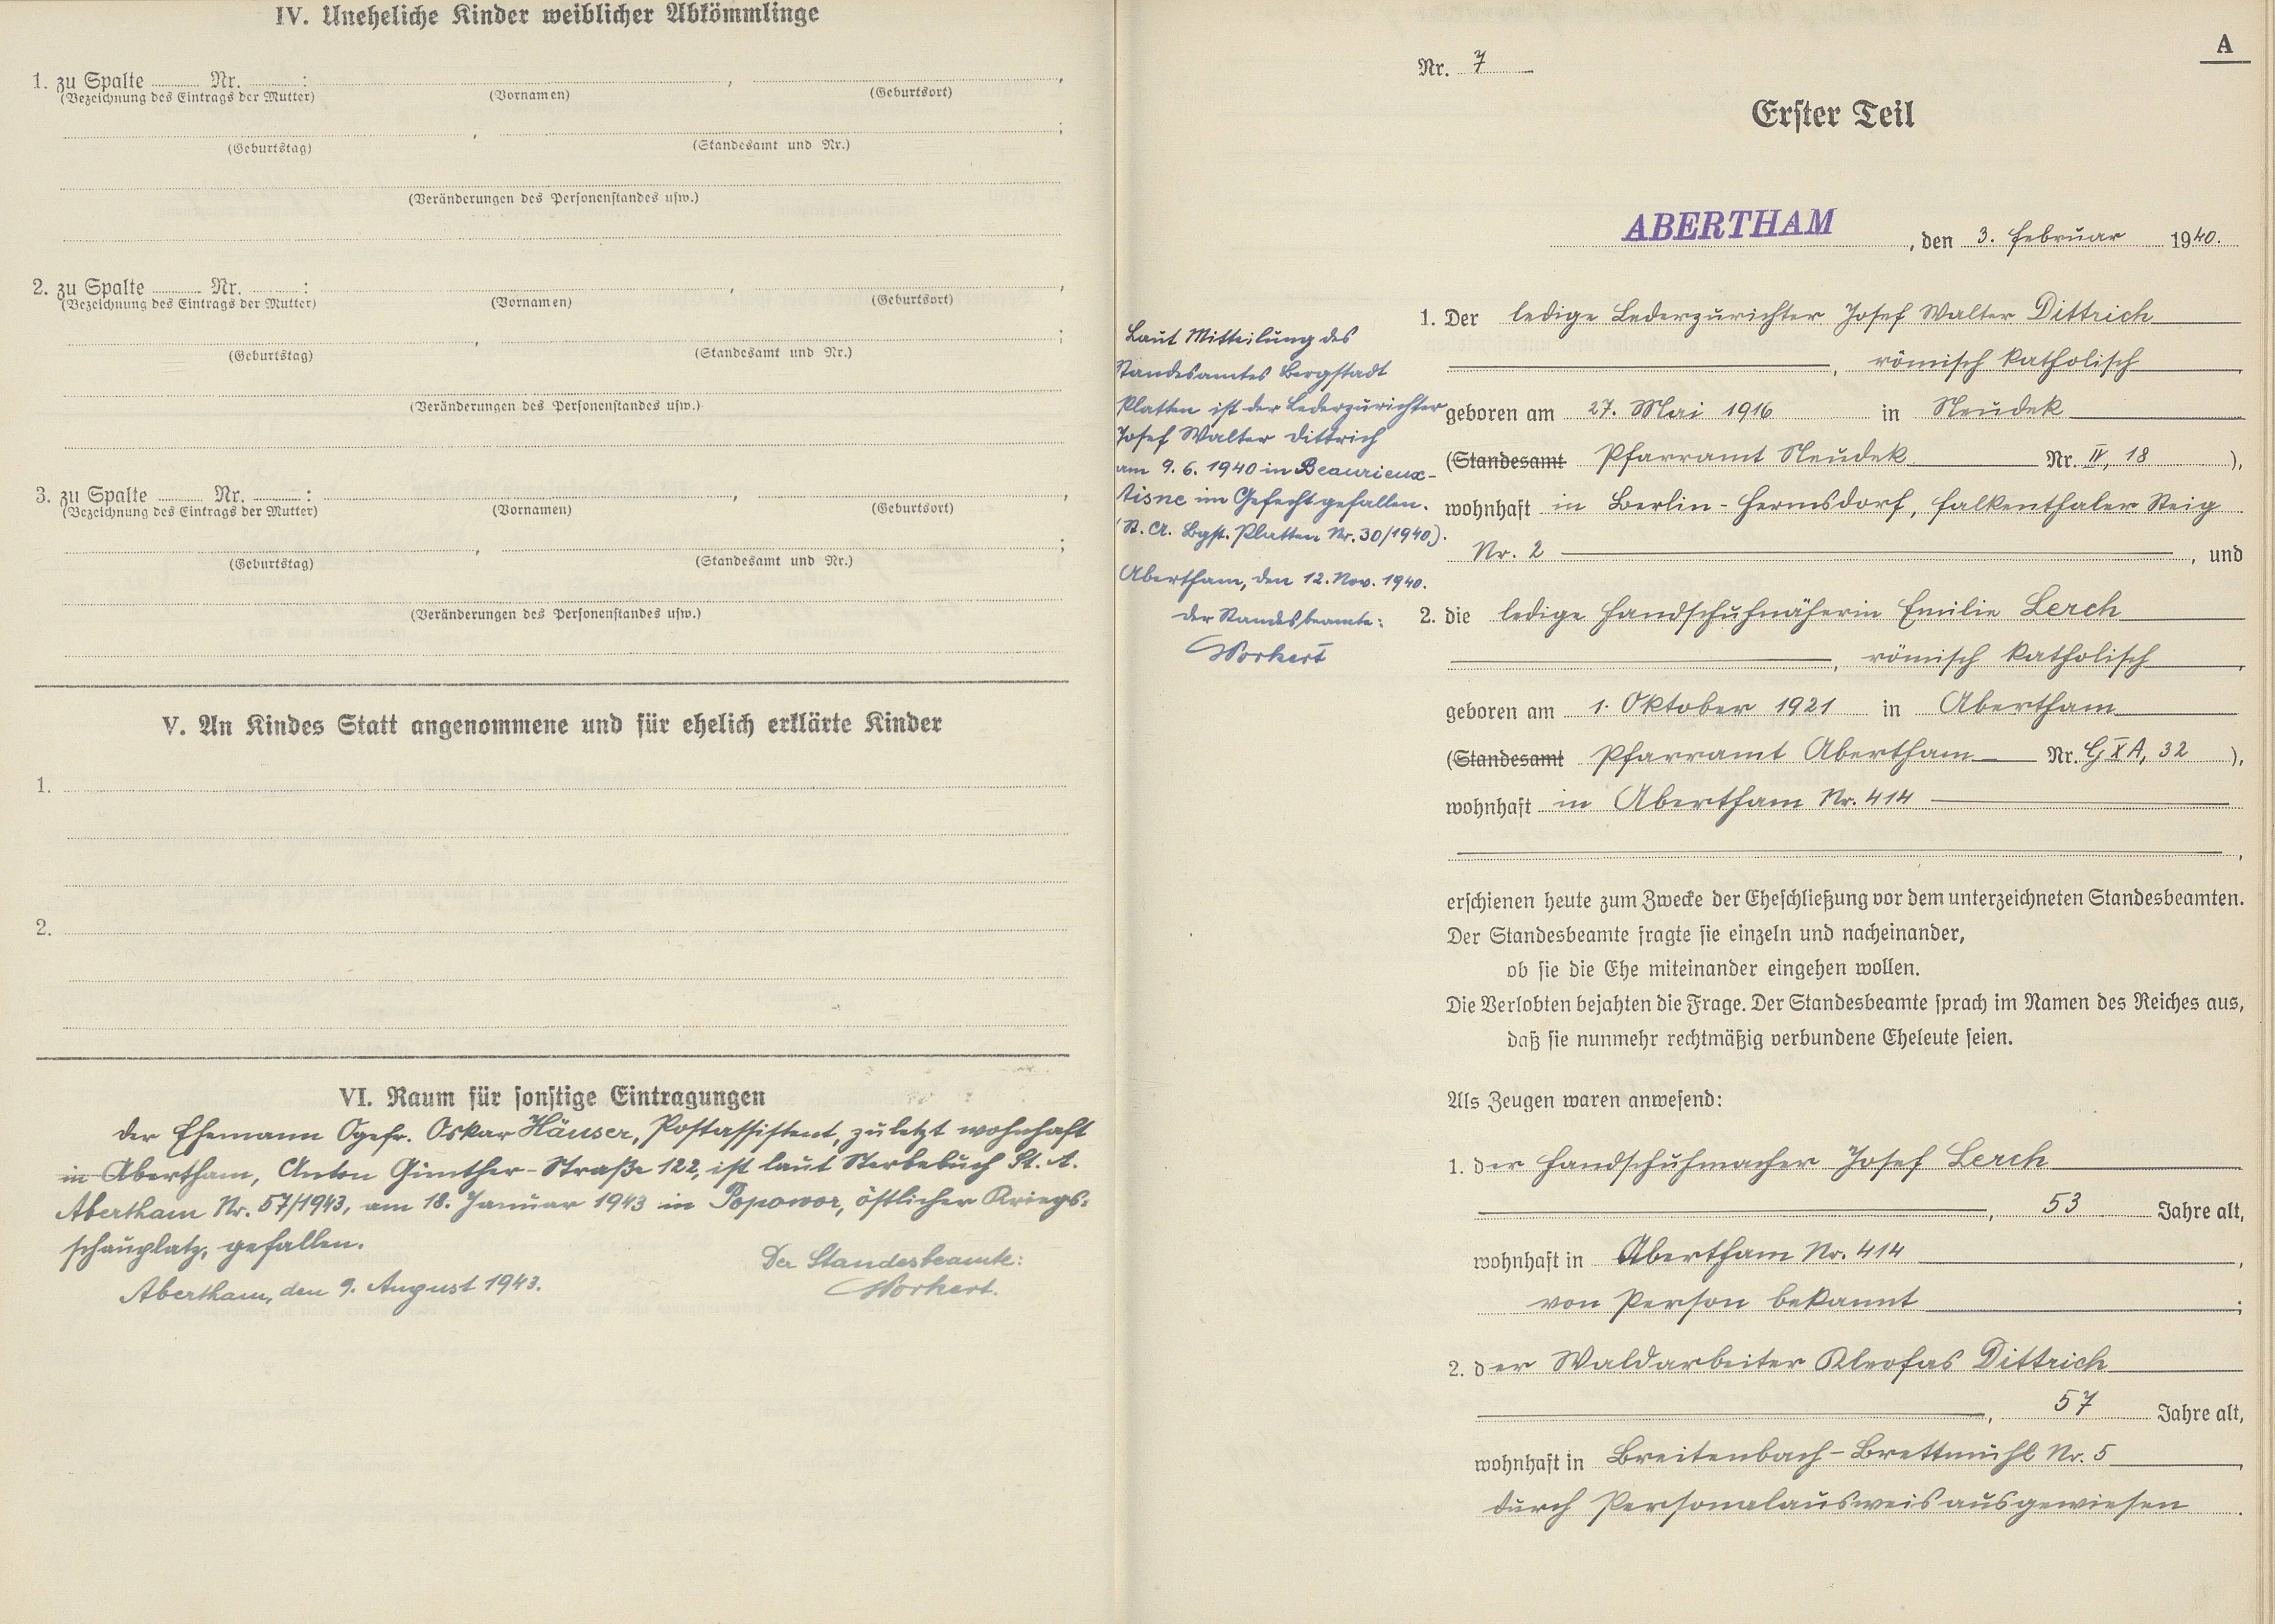 IV. Uneheliche Kinder weiblicher Abkömmlinge
1. zu Spalte ........ Nr. ........ : , ,
(Bezeichnung des Eintrags der Mutter) (Vornamen) (Geburtsort)
, ;
(Geburtstag) (Standesamt und Nr.)
(Veränderungen des Personenstandes usw.)
2. zu Spalte ........ Nr. ........ : , ,
(Bezeichnung des Eintrags der Mutter) (Vornamen) (Geburtsort)
, ;
(Geburtstag) (Standesamt und Nr.)
(Veränderungen des Personenstandes usw.)
3. zu Spalte ........ Nr. ........ : , ,
(Bezeichnung des Eintrags der Mutter) (Vornamen) (Geburtsort)
, ;
(Geburtstag) (Standesamt und Nr.)
(Veränderungen des Personenstandes usw.)
V. An Kindes Statt angenommene und für ehelich erklärte Kinder
1.
2.
VI. Raum für sonstige Eintragungen
Der Ehemann Ogefr. Oskar Häuser, Postassistent, zuletzt wohnhaft
in Abertham, Anton Günther-Straße 122, ist laut Sterbebuch St. A.
Abertham Nr. 57/1943, am 18. Januar 1943 in Popowor, östlicher Kriegs-
schauplatz, gefallen.
Der Standesbeamte:
Abertham, den 9. August 1943.
Workert.
A
Nr. 7
Erster Teil
ABERTHAM, den 3. Februar 1940.
Laut Mitteilung des
Standesamtes Bergstadt
Platten ist der Lederzurichter
Josef Walter Dittrich
am 9. 6. 1940 in Beaurieux-
Aisne im Gefecht gefallen.
(St. A. Bgst. Platten Nr. 30/1940).
Abertham, den 12. Nov. 1940.
Der Standesbeamte:
Workert
1. Der ledige Lederzurichter Josef Walter Dittrich
, römisch katholisch ,
geboren am 27. Mai 1916 in Neudek
(Standesamt Pfarramt Neudek Nr. IV, 18 ),
wohnhaft in Berlin-Hermsdorf, Falkenthaler Steig
Nr. 2 , und
2. die ledige Handschuhnäherin Emilie Lerch
, römisch katholisch ,
geboren am 1. Oktober 1921 in Abertham
(Standesamt Pfarramt Abertham Nr. G X A, 32 ),
wohnhaft in Abertham Nr. 414
,
erschienen heute zum Zwecke der Eheschließung vor dem unterzeichneten Standesbeamten.
Der Standesbeamte fragte sie einzeln und nacheinander,
ob sie die Ehe miteinander eingehen wollen.
Die Verlobten bejahten die Frage. Der Standesbeamte sprach im Namen des Reiches aus,
daß sie nunmehr rechtmäßig verbundene Eheleute seien.
Als Zeugen waren anwesend:
1. der Handschuhmacher Josef Lerch
, 53 Jahre alt,
wohnhaft in Abertham Nr. 414 ,
von Person bekannt ;
2. der Waldarbeiter Kleofas Dittrich
, 57 Jahre alt,
wohnhaft in Breitenbach-Brettmühl Nr. 5 ,
durch Personalausweis ausgewiesen .